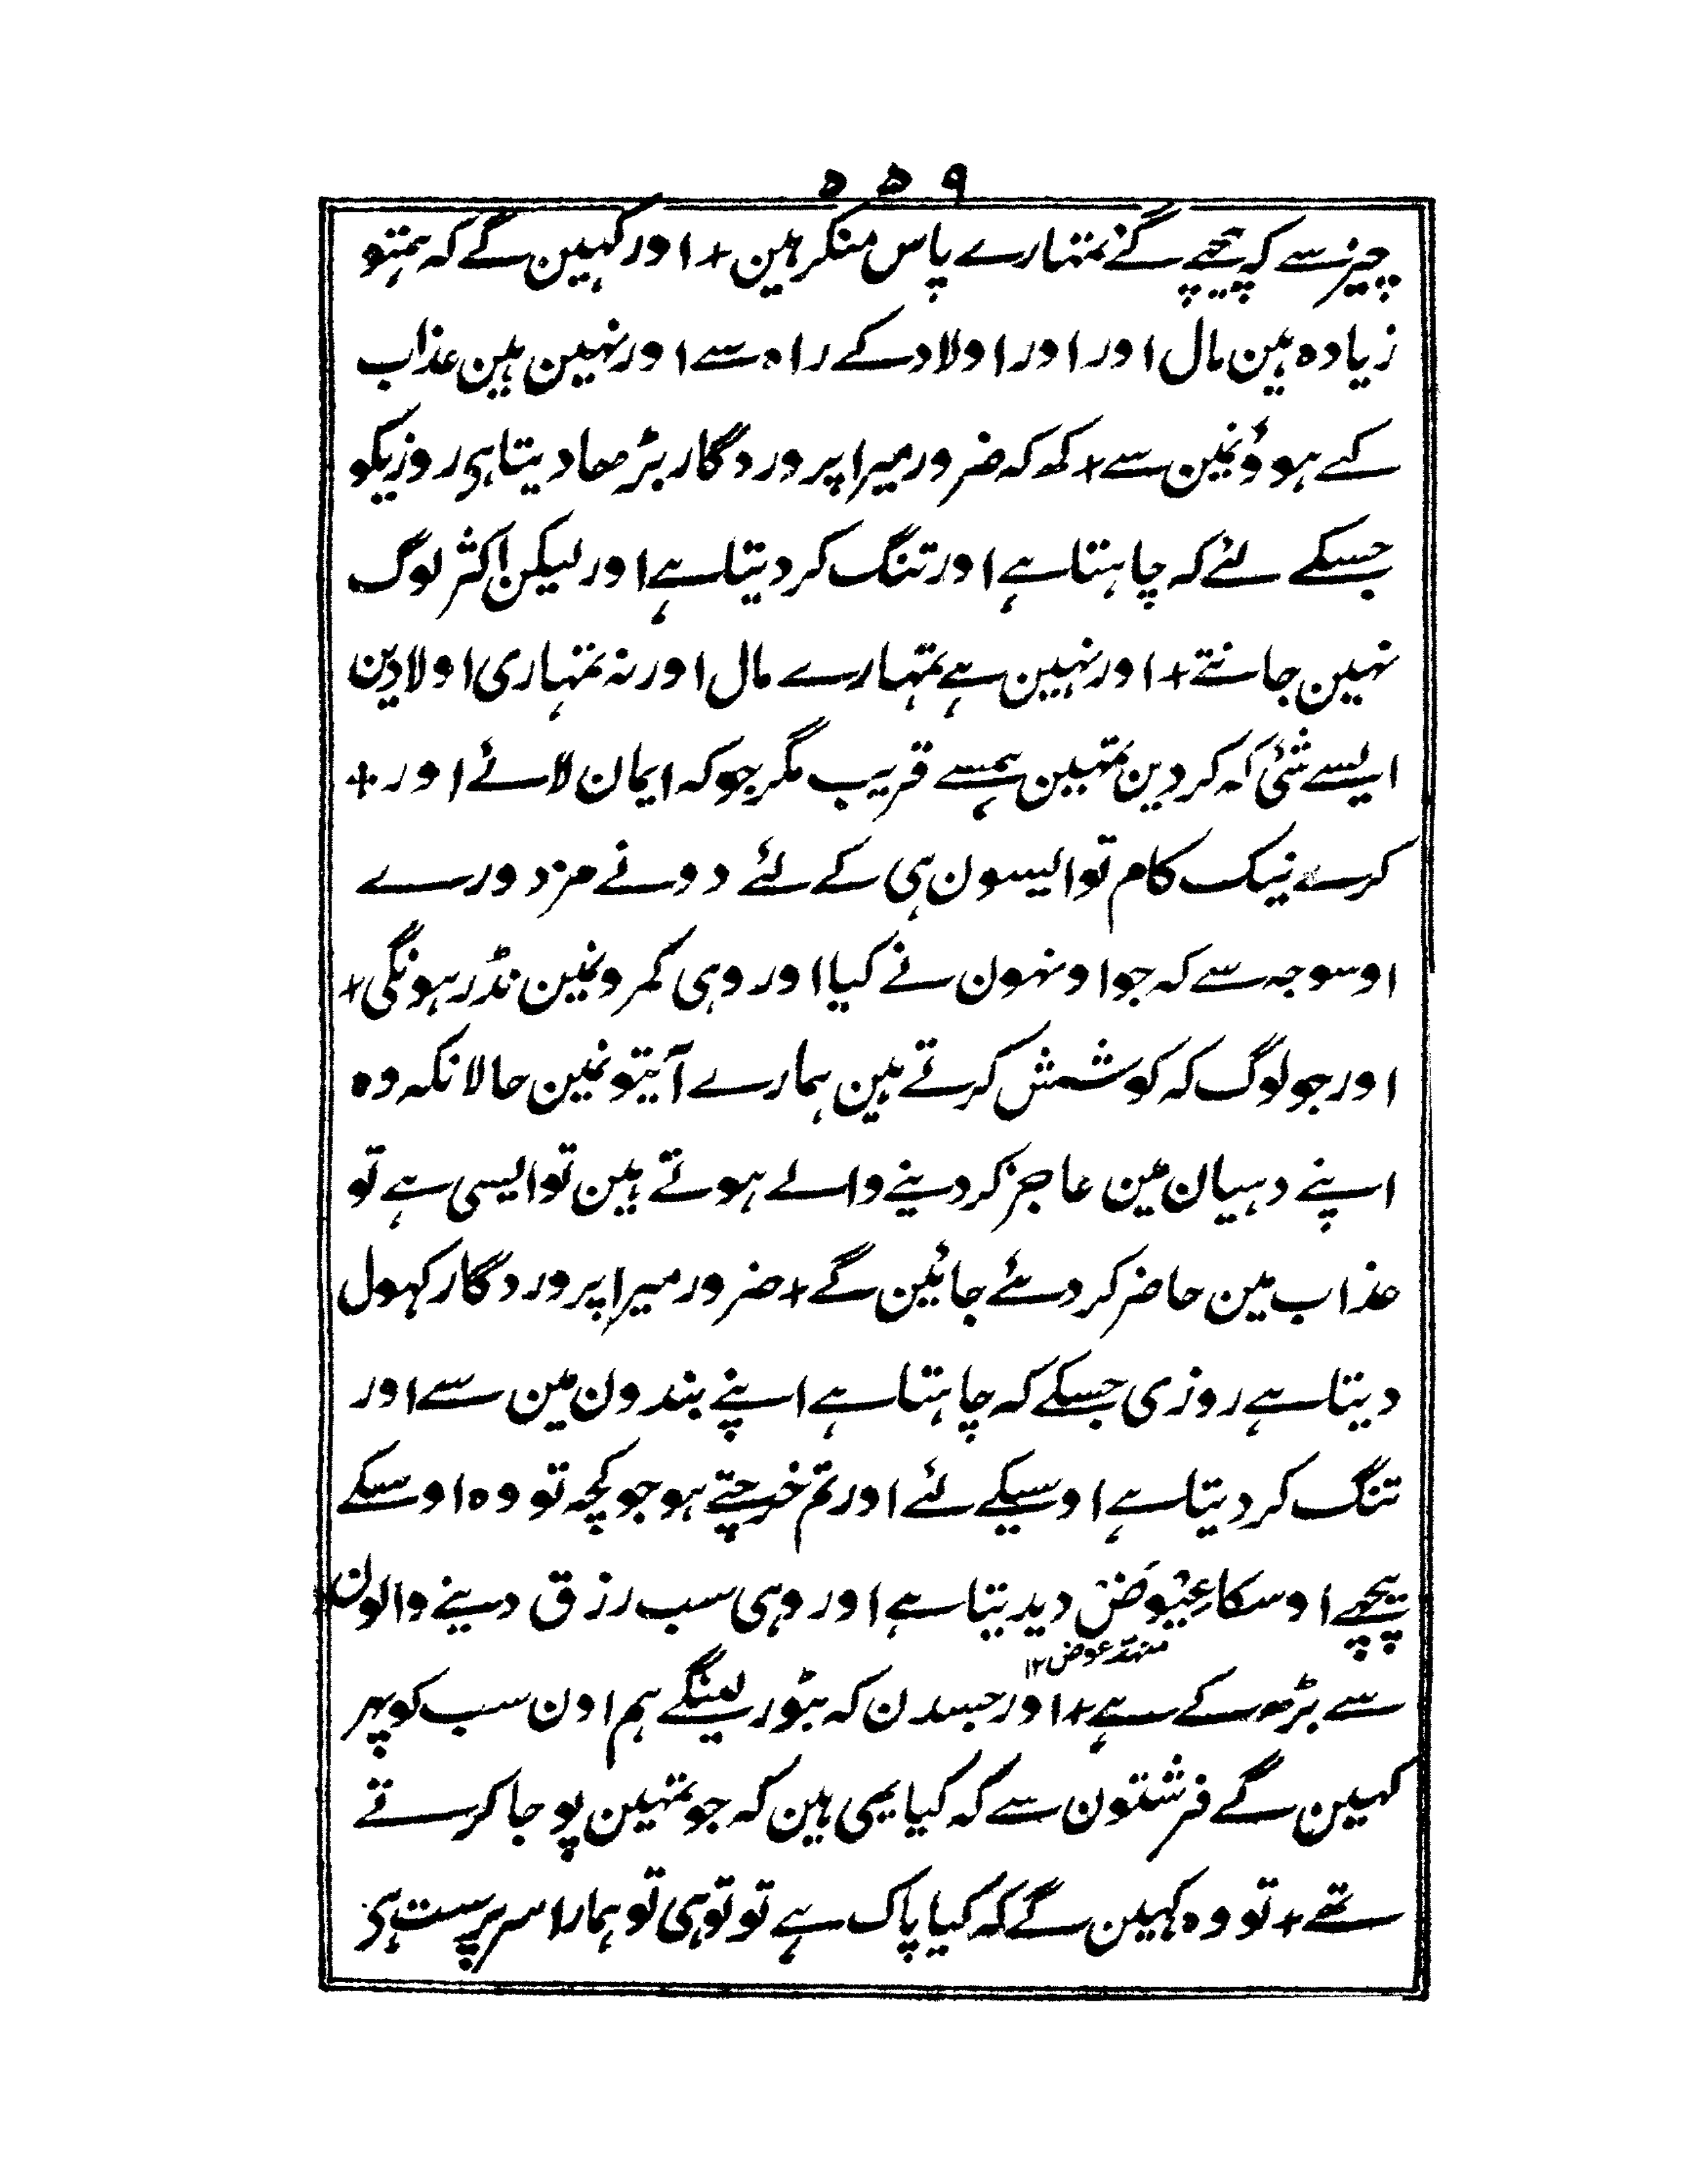 ۹ ھ ہ
چیز سے کہ بھیجے گئے تمہارے پاس منکر ہین + اور کہین گے کہ ہمتو
زیادہ ہین مال اور اور اولاد کے راہ سے اور نہین ہین عذاب
کے ہوؤنمین سے + کہ کہ ضرور میرا پروردگار بڑھا دیتا ہی روزیکو
جسکے لئے کہ چاہتا ہے اور تنگ کر دیتا ہے اور لیکن اکثر لوگ
نہین جانتے + اور نہین ہے تمہارے مال اور نہ تمہاری اولادین
ایسے شئی کہ کر دین تمہین ہمسے قریب مگر جو کہ ایمان لائے اور +
کرے نیک کام تو ایسون ہی کے لئے دونے مزدورے
اوسوجہ سے کہ جو اونہون نے کیا اور وہی کمرونمین نڈر ہونگی +
اور جو لوگ کہ کوشش کرتے ہین ہمارے آیتونمین حالانکہ وہ
اپنے دہیان مین عاجز کر دینے والے ہوتے ہین تو ایسی ہے تو
عذاب مین حاضر کر دئے جائین گے + ضرور میرا پروردگار کہول
دیتا ہے روزی جسکے کہ چاہتا ہے اپنے بندون مین سے اور
تنگ کر دیتا ہے اوسیکے لئے اور تم خرچتے ہو جو کچہ تو وہ اوسکے
پیچھے اوسکا عِیْوَضْ دیدیتا ہے اور وہی سب رزق دینے والون
عوض ۱۲
سے بڑھ کے ہے + اور جسدن کہ بٹور لینگے ہم اون سب کو پہر
کہین گے فرشتون سے کہ کیا یہی ہین کہ جو تمہین پوجا کرتے
تھے + تو وہ کہین گے کہ کیا پاک ہے تو توہی تو ہمارا سرپرست ہی